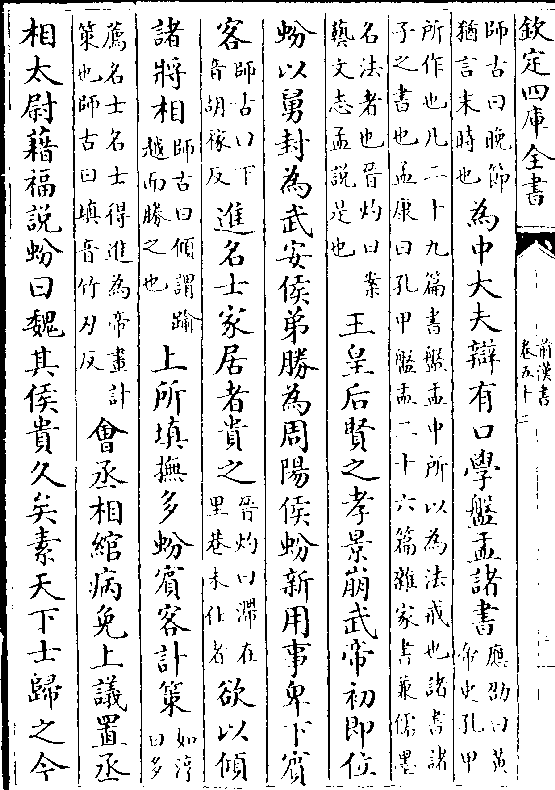 欽定四庫全書
前漢書
卷五十二
師古曰晚節
猶言末時也
為中大夫辯有口學盤盂諸書
應劭曰黃
帝史孔甲
所作也凡二十九篇書盤盂中所以為法戒也諸書諸
子之書也孟康曰孔甲盤盂二十六篇雜家書兼儒墨
名法者也晉灼曰案
藝文志孟說是也
王皇后賢之孝景崩武帝初即位
蚡以舅封為武安侯弟勝為周陽侯蚡新用事卑下賓
客
師古曰下
音胡稼反
進名士家居者貴之
晉灼曰滯在
里巷未仕者
欲以傾
諸將相
師古曰傾謂踰
越而勝之也
上所填撫多蚡賓客計策
如淳
曰多
薦名士名士得進為帝畫計
策也師古曰填音竹刃反
會丞相綰病免上議置丞
相太尉藉福說蚡曰魏其侯貴久矣素天下士歸之今